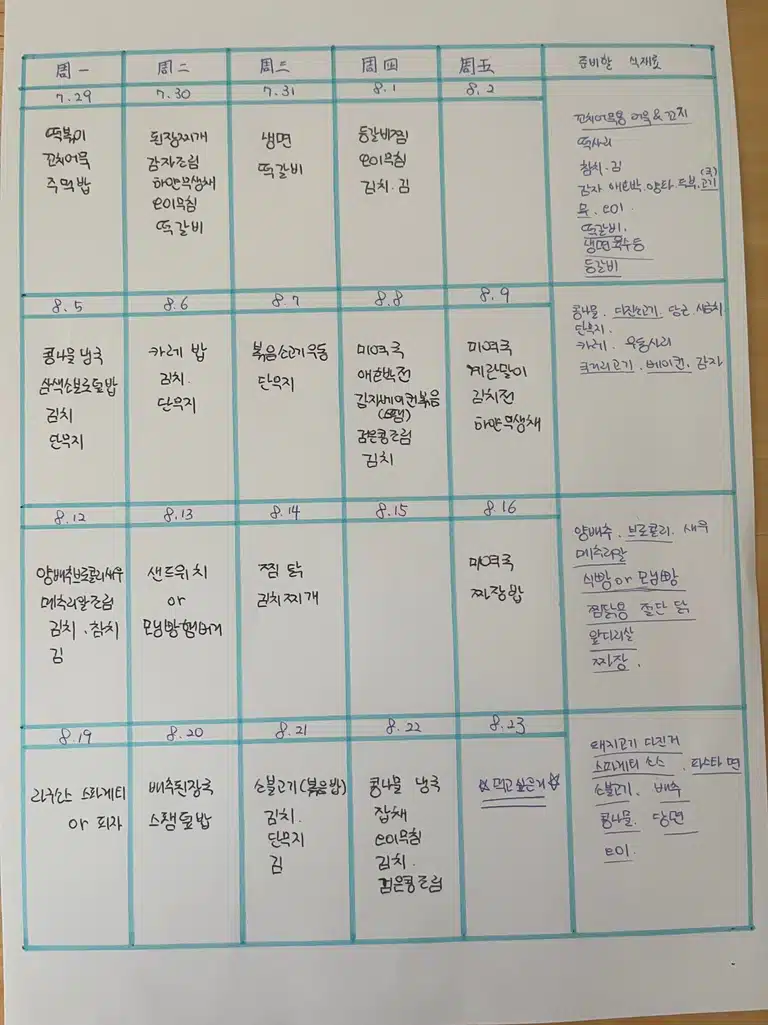 周一 周二 周三 周四 周五 준비할 식재료
7.29 7.30 7.31 8.1 8.2
떡볶이
꼬치어묵
주먹밥
된장찌개
감자조림
하얀무생채
오이무침
떡갈비
냉면
떡갈비
등갈비찜
오이무침
김치.김
꼬치어묵용 어묵&꼬지
떡사리
참치.김
감자 애호박.양파.두부.고기(국)
무.오이.
떡갈비.
냉면육수등
등갈비
8.5 8.6 8.7 8.8 8.9
콩나물 냉국
삼색소보로덮밥
김치
단무지
카레 밥
김치.
단무지
볶음소고기우동
단무지
미역국
애호박전
감자베이컨볶음
(스팸)
검은콩조림
김치
미역국
계란말이
김치전
하얀무생채
콩나물.다진고기.당근 시금치
단무지.
카레. 우동사리
국거리고기.베이컨.감자
8.12 8.13 8.14 8.15 8.16
양배추브로콜리새우
메추리알조림
김치.참치
김
샌드위치
or
모닝빵햄버거
찜 닭
김치찌개
미역국
짜장밥
양배추.브로콜리.새우
메추리알
식빵 or 모닝빵
찜닭용 절단 닭
앞다리살
짜장.
8.19 8.20 8.21 8.22 8.23
라구소스 스파게티
or 피자
배추된장국
스팸덮밥
소불고기(볶음밥)
김치.
단무지
김
콩나물 냉국
잡채
오이무침
김치.
검은콩조림
☆먹고싶은거☆
돼지고기 다진거
스파게티 소스.파스타 면
소불고기. 배추
콩나물. 당면
오이.